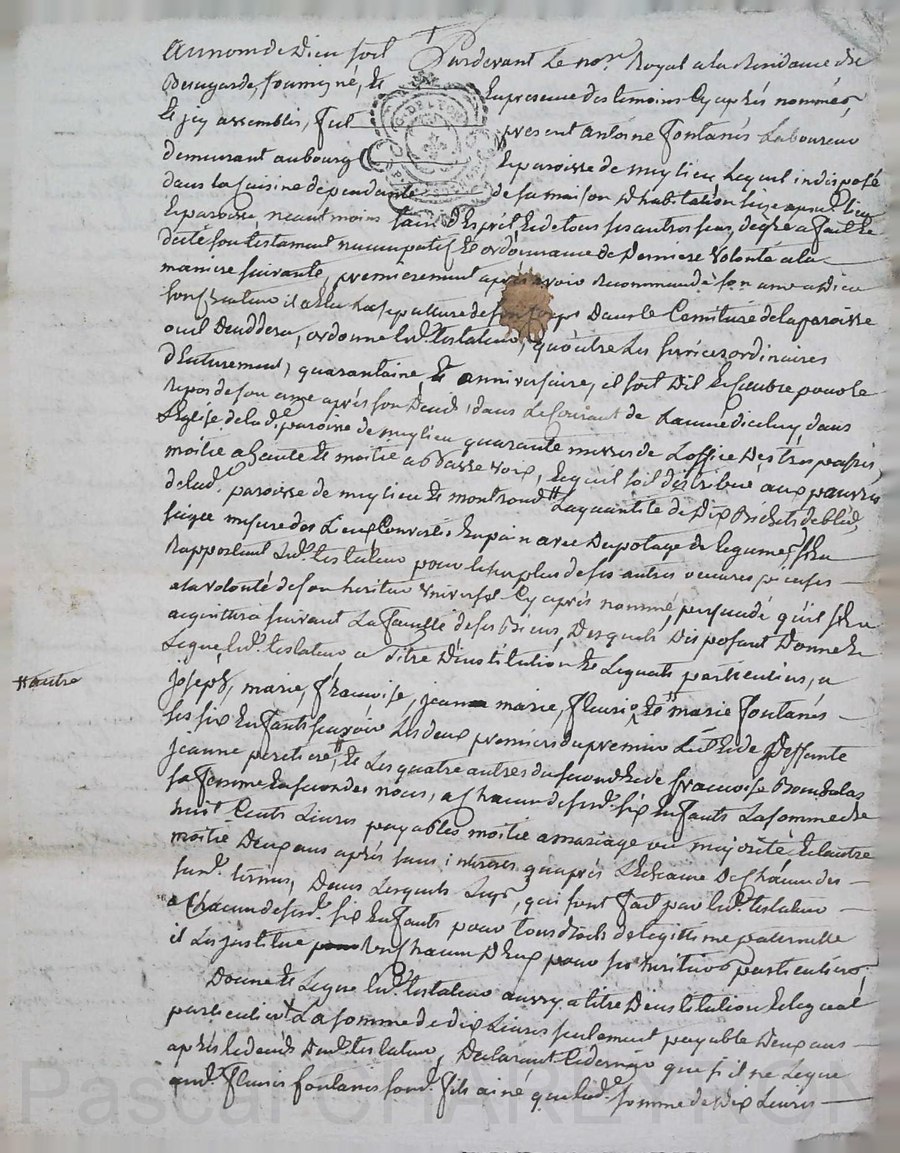 Au nom de Dieu soit Pardevant Le no.re Royal a la Residance de
Beaugarde, soussigné, et En presence des temoins Cy après nommés
Et icy assemblés, fut present antoine fontanés Laboureur
demeurant au bourg Et paroisse de myzlieu Lequel indisposé
dans La Cuisine dependante de sa maison D'habitation size aud. lieu
Et paroisse neautmoins sain D'Esprit Et de tous ses autres sens, de gré a fait Et
dicté son testament nuncupatif Et ordonnance de Derniere Volonté a la
maniere suivante, premierement après avoir Recommandé son ame a Dieu
son Createur il a Elu La sepulture de son Corps Dans le Cemitiere de la paroisse
ou il Deceddera, ordonne led. testateur, qu'outre Les services ordinaires
D'enterrement, quarantaine Et anniversaire, il soit Dit Et Celebré pour le
Repos de son ame après son Decéds, dans Le Courant de L'année d'iceluy, dans
L'Eglise de lad.e paroisse de myzlieu quarante messes de L'office Des trespassés,
moitié a haute Et moitié a Basse voix, Et qu'il soit distribué aux pauvres
de lad. paroisse de myzlieu Et montrond La quantité de Dix Bichets de bled,
seigle mesure des Lieux Convertis En pain avec Du potage de legumes, s'En
Rapportant Led. testateur pour le surplus de ses autres oeuvres pieuses
a la volonté de son heritier Universel Cy après nommé, persuadé qu'il s'En
acquittera suivant La faculté de ses Biens, Desquels Disposant Donne Et
Legue, led. testateur a titre D'institution Et Legats particuliers, a
#autre
joseph, marie, françoise, jeanne marie, fleurie, Et # marie fontanés
ses six Enfants sçavoir Les deux premiers du premier Lit Et de Deffunte
jeanne peretiere, Et Les quatre autres du second Et de françoise
sa femme En secondes noces, a Chacun de sesd. six Enfants La somme de
huit Cents Livres payables moitié a mariage ou majorité Et L'autre
moitié Deux ans après sans interets qu'après L'Echeance De Chacun des
susd. termes, Dans Lesquels Legs, qui sont fait par led. testateur
a Chacun de sesd. six Enfants pour tous droits de legittime paternelle
il Les institue Un Chacun D'Eux pour ses heritiers particuliers.
Donne Et Legue led. testateur aussy a titre D'institution Et legat
particulier La somme de dix Livres seulement payable Deux ans
après le decéds Dud. testateur, Declarant ce dernier que s'il ne Legue
aud. fleuris fontanés sond. fils ainé que lad.e somme de Dix Livres
Pascal CHAREYRON